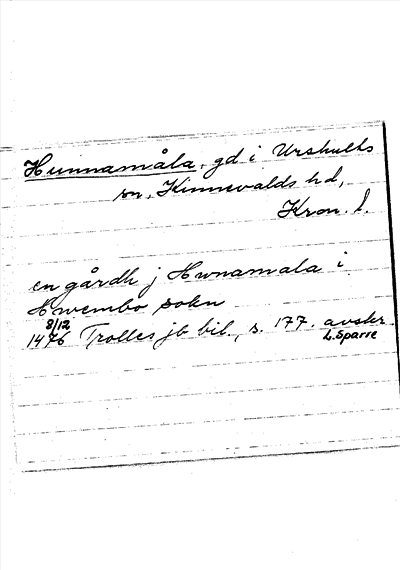 Hunnamåla, gd i Urshults
sn, Kinnevalds hd,
Kron. l.
en gårdh j Hwnamala i
Hwembo sokn
8/12
1476 Trolles jb bil., s. 177. avskr.
L. Sparre